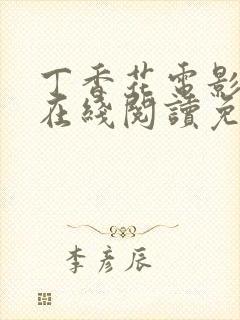 丁香花電影
在綫閱讀免
李彦辰